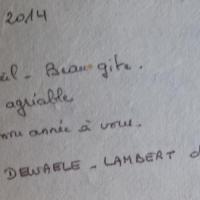 2014
Beau gîte.
agréable
année à vous.
DEWAELE - LAMBERT